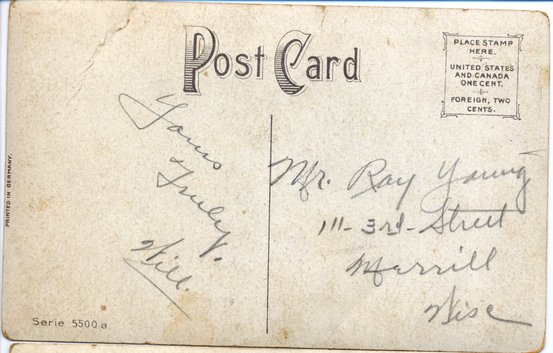 Post Card
PLACE STAMP
HERE.
UNITED STATES
AND CANADA
ONE CENT.
FOREIGN, TWO
CENTS.
Yours
Truly,
Will.
Mr. Ray Young
111-3rd-Street
Merrill
Wisc
PRINTED IN GERMANY.
Serie 5500 a